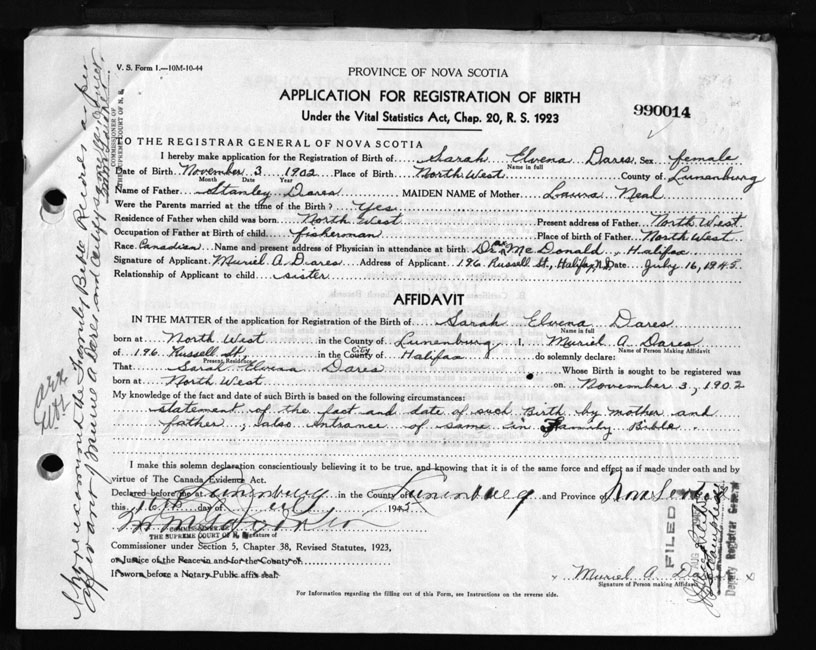 V. S. Form 1.—10M-10-44
PROVINCE OF NOVA SCOTIA
APPLICATION FOR REGISTRATION OF BIRTH
990014
Under the Vital Statistics Act, Chap. 20, R. S. 1923
TO THE REGISTRAR GENERAL OF NOVA SCOTIA
I hereby make application for the Registration of Birth of Sarah Elvena Dares Sex female
Name in full
Date of Birth November 3 1902 Place of Birth North West County of Lunenburg
Month Date Year
Name of Father Stanley Dares MAIDEN NAME of Mother Laura Neal
Were the Parents married at the time of the Birth? Yes
Residence of Father when child was born North West Present address of Father North West
Occupation of Father at Birth of child fisherman Place of birth of Father North West
Race Canadian Name and present address of Physician in attendance at birth McDonald, Halifax
Signature of Applicant Muriel A Dares Address of Applicant 196 Russell St., Halifax, N.S. Date July 16, 1945
Relationship of Applicant to child sister
AFFIDAVIT
IN THE MATTER of the application for Registration of the Birth of Sarah Elvena Dares
Name in full
born at North West in the County of Lunenburg I, Muriel A Dares
Name of Person Making Affidavit
of 196 Russell St. in the County City of Halifax do solemnly declare:
Present Residence
That Sarah Elvena Dares Whose Birth is sought to be registered was
born at North West on November 3, 1902
My knowledge of the fact and date of such Birth is based on the following circumstances:
statement of the fact and date of such Birth by mother and
father, also entrance of same in Family Bible.
I make this solemn declaration conscientiously believing it to be true, and knowing that it is of the same force and effect as if made under oath and by
virtue of The Canada Evidence Act.
Declared before me at Lunenburg in the County of Lunenburg and Province of Nova Scotia
this 16th day of July 1945
COMMISSIONER OF
THE SUPREME COURT OF N. S.
Signature of
Commissioner under Section 5, Chapter 38, Revised Statutes, 1923,
or Justice of the Peace in and for the County of
If sworn before a Notary Public affix seal.
x Muriel A. Dares x
Signature of Person making Affidavit
For Information regarding the filling out of this Form, see Instructions on the reverse side.
FILED
Deputy Registrar General
COMMISSIONER OF
THE SUPREME COURT OF N. S.